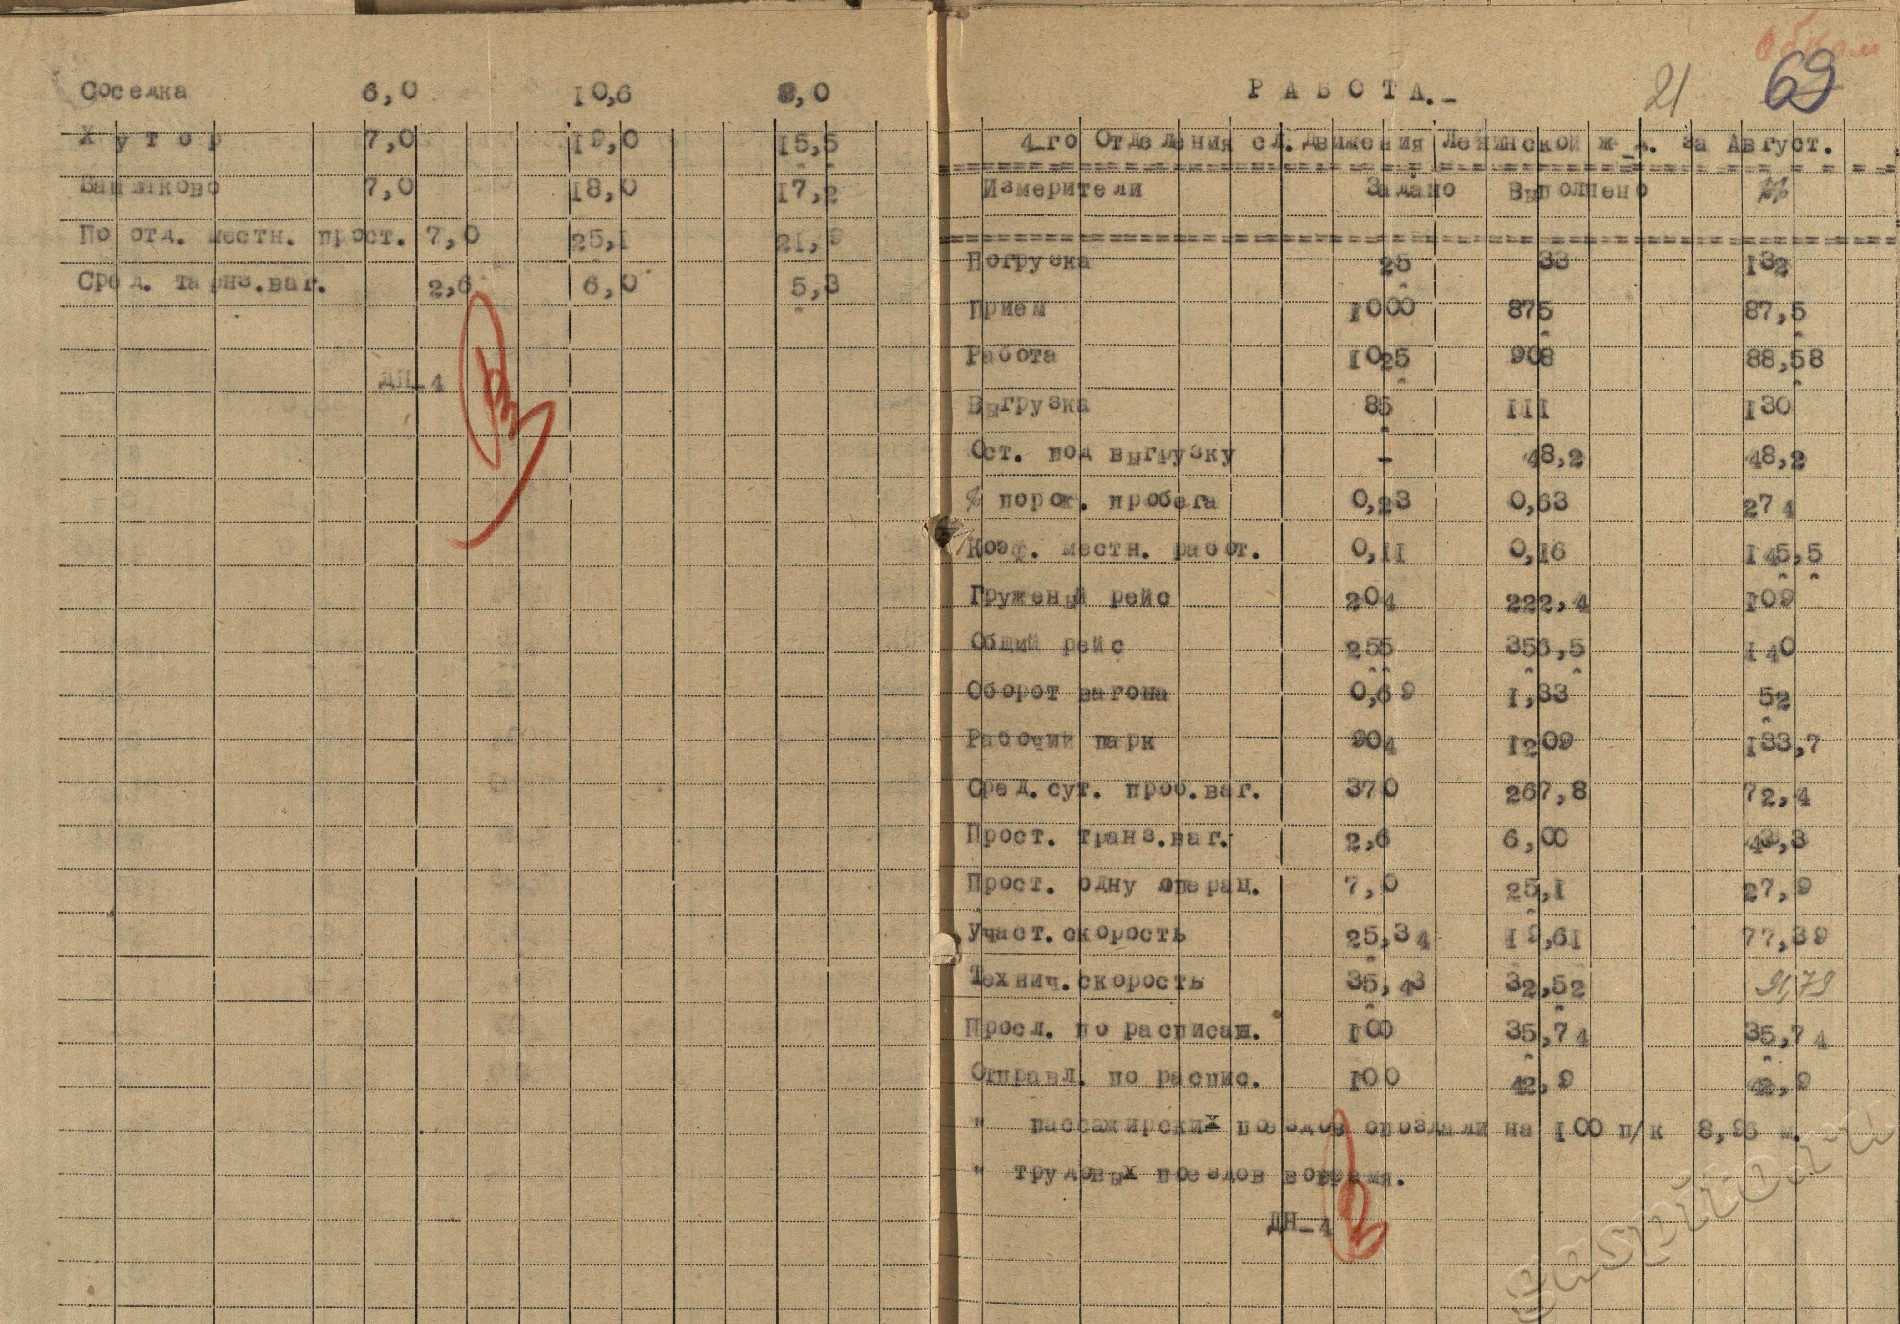 Соседка 6,0 10,6 9,0
Хутор 7,0 19,0 15,5
Башмаково 7,0 18,0 17,2
По отд. местн. прост. 7,0 25,1 21,9
Сред. транз.ваг. 2,6 6,0 5,3
ДН-4
21 69
РАБОТА.-
4-го Отделения сл.движения Ленинской ж.д. за Август.
Измерители Задано Выполнено %%
Погрузка 25 33 132
Прием 1000 875 87,5
Работа 1025 908 88,58
Выгрузка 85 111 130
Ост. под выгрузку - 48,2 48,2
% порож. пробега 0,23 0,63 274
Коэф. местн. работ. 0,11 0,16 145,5
Груженый рейс 204 222,4 109
Общий рейс 255 356,5 140
Оборот вагона 0,69 1,33 52
Рабочий парк 904 1209 133,7
Сред.сут. проб.ваг. 370 267,8 72,4
Прост. транз.ваг. 2,6 6,00 43,3
Прост. одну операц. 7,0 25,1 27,9
Участ.скорость 25,34 19,61 77,39
Технич.скорость 35,43 32,52 91,79
Просл. по расписан. 100 35,74 35,74
Отправл. по распис. 100 42,9 42,9
" пассажирских поездов опоздали на 100 п/к 8,96 м.
" трудовых поездов вовремя.
ДН-4
gaspito.ru